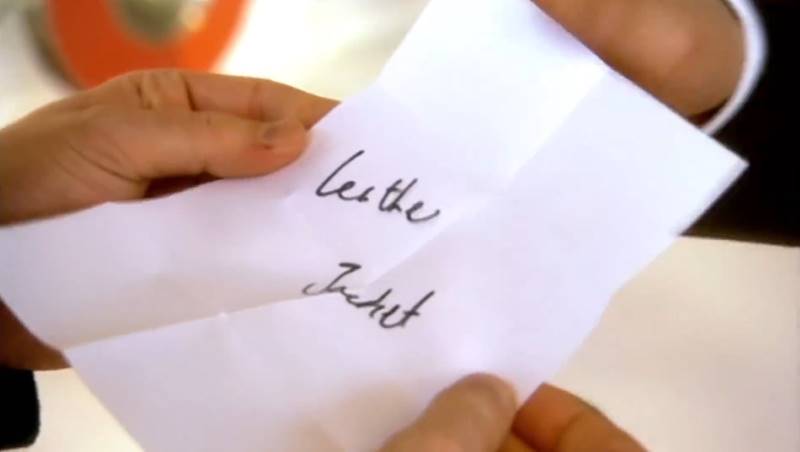 Leather
Jacket